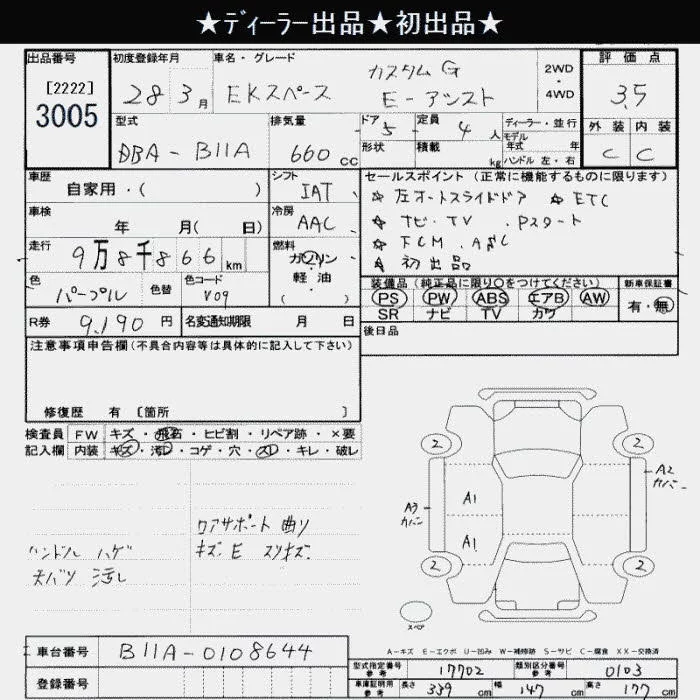 ★ディーラー出品★初出品★
出品番号 初度登録年月 車名・グレード 評価点
[2222]
3005
28 3月 EKスペース カスタムG
E-アシスト
2WD・4WD
3.5
型式 排気量 ドア 5 定員 4人 ディーラー・並行
モデル年式 年 外装 内装
DBA-B11A 660cc 形状 積載 kg ハンドル 左・右 C C
車歴 自家用・( ) シフト IAT セールスポイント(正常に機能するものに限ります)
☆左オートスライドドア ☆ETC
車検 年 月( 日) 冷房 AAC ☆ナビ・TV . Pスタート
走行 9万8千866km 燃料 ガソリン・軽・油 ( ) ☆FCM . ASC
☆初出品
色 パープル 色替 色コード V09
装備品(純正品に限り○をつけてください) 新車保証書
PS PW ABS エアB AW 有・無
SR ナビ TV カワ
R券 9,190円 名変通知期限 月 日 後日品
注意事項申告欄(不具合内容等は具体的に記入して下さい)
修復歴 有 [箇所 ]
検査員 FW キズ・飛石・ヒビ割・リペア跡・×要
記入欄 内装 キズ・汚レ・コゲ・穴・スレ・キレ・破レ
コアサポート 曲リ
キズ E スリキズ
ハンドル ハゲ
天バリ 汚レ
2 2
A2 カバー
A3 カバー
A1
A1
2 2
スペア
A-キズ E-エクボ U-凹み W-補修跡 S-サビ C-腐食 XX-交換済
車台番号 B11A-0108644
登録番号
型式指定番号 参考 17702 類別区分番号 参考 0103
車庫証明用 参考 長さ 339cm 幅 147cm 高さ 177cm